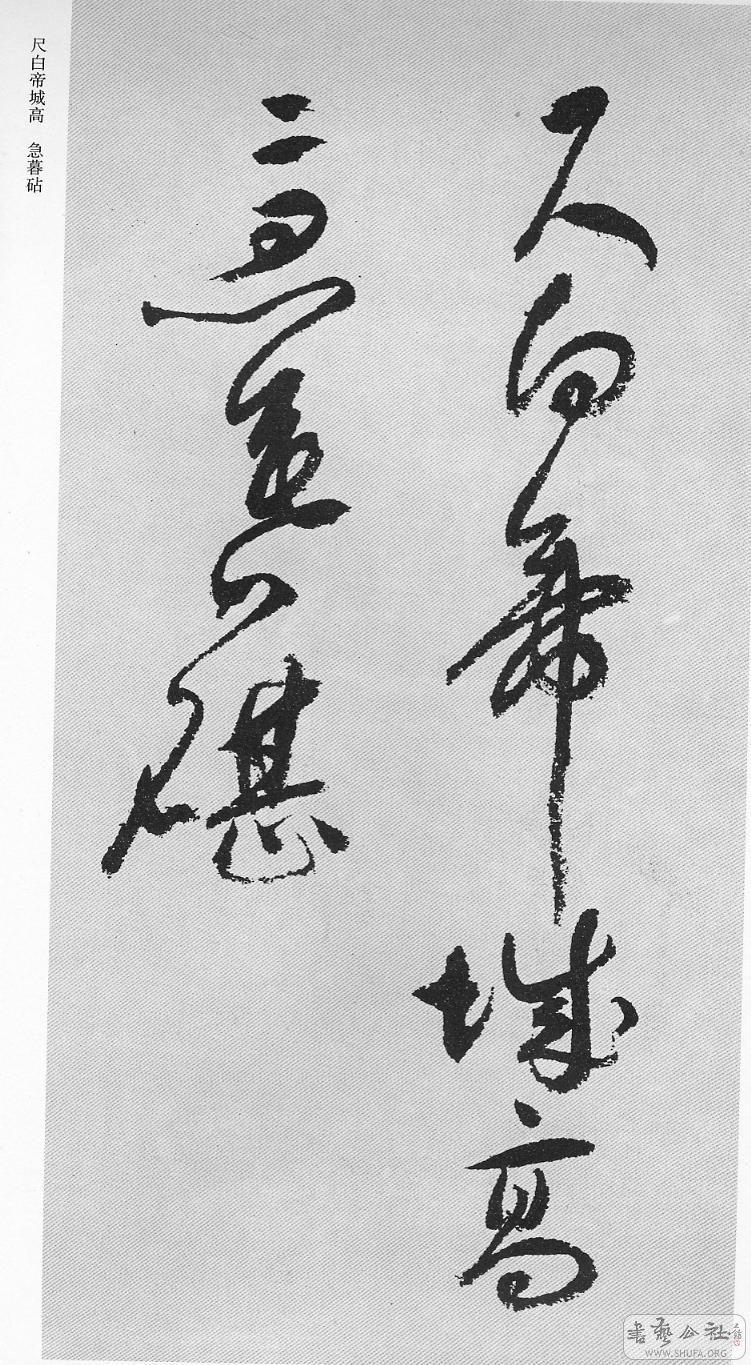 尺白帝城高
急暮碪
尺白帝城高　急暮砧
書藝公社
WWW.SHUFA.ORG